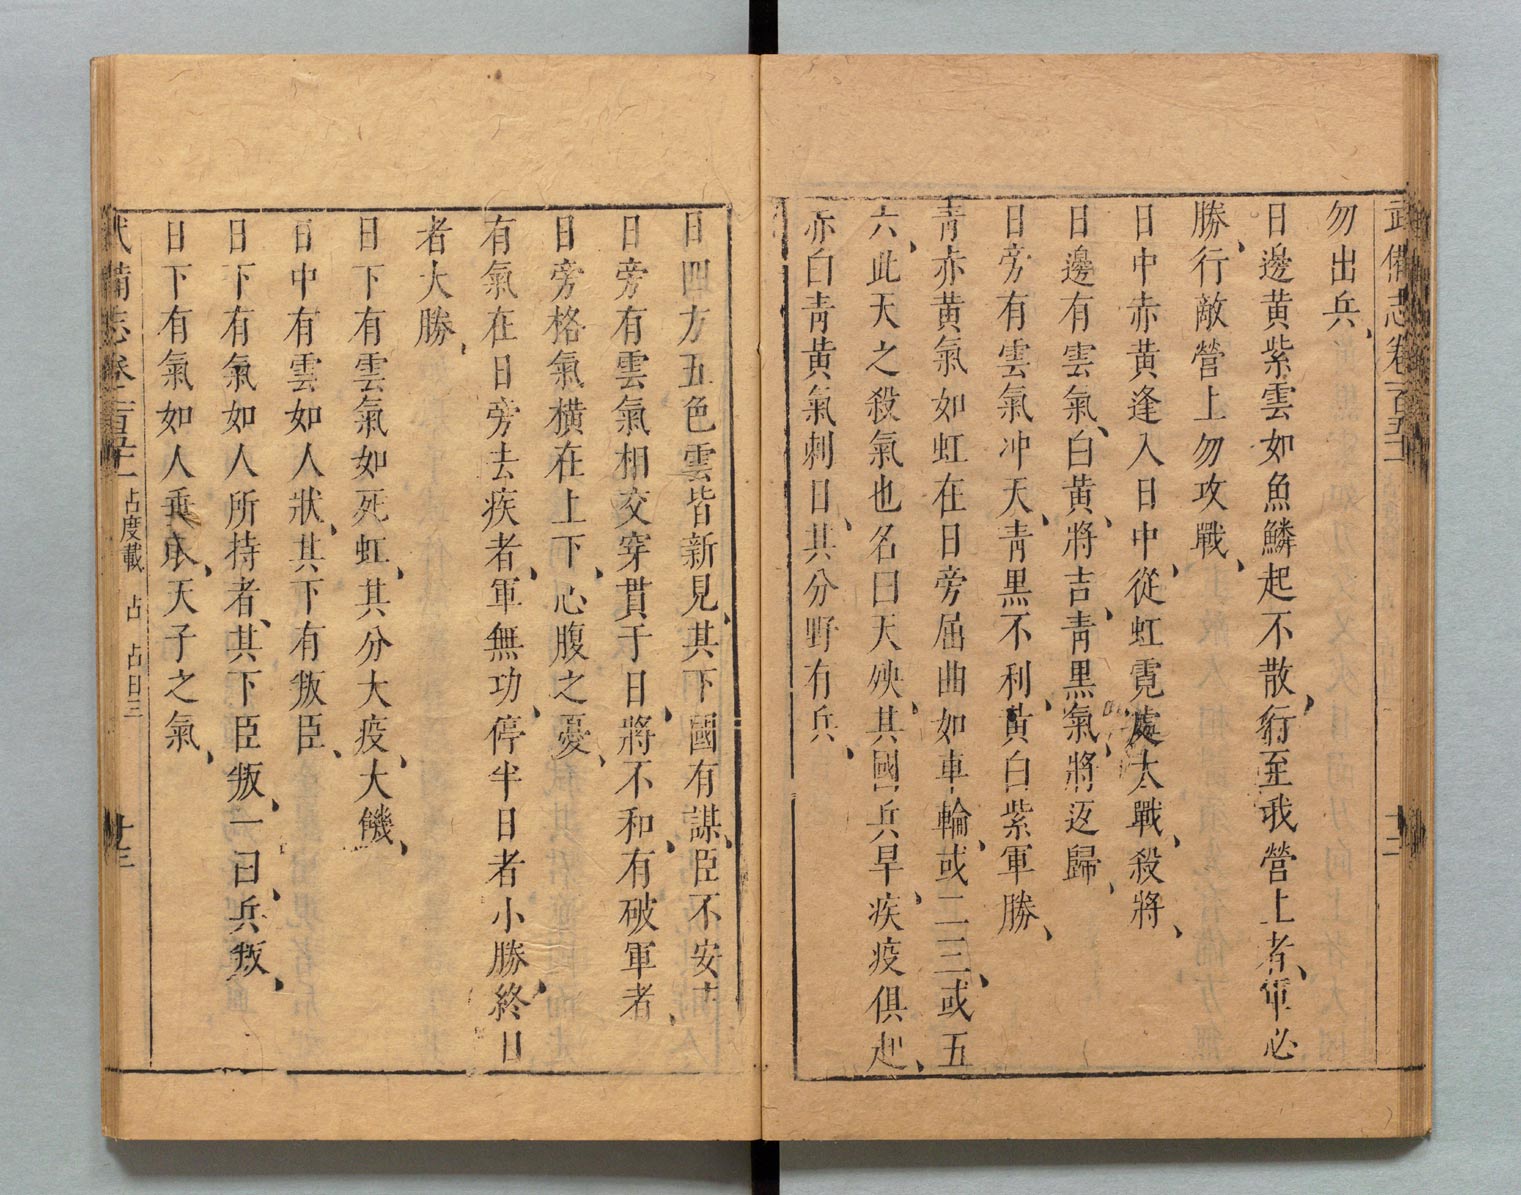 武備志卷一百五十一
十二
勿出兵、
日邊黄紫雲如魚鱗起不散、行至我營上者、軍必
勝、行敵營上勿攻戰、
日中赤黄逢入日中、從虹霓處大戰、殺將、
日邊有雲氣、白黄、將吉、青黒氣、將返歸、
日旁有雲氣冲天、青黒不利、黄白紫軍勝、
青赤黄氣如虹在日旁屈曲如車輪、或二三、或五
六、此天之殺氣也名曰天殃、其國兵旱、疾疫俱起、
赤白青黄氣刺日、其分野有兵、
日四方五色雲皆新見、其下國有謀、臣不安
日旁有雲氣相交穿貫于日、將不和、有破軍者、
日旁格氣橫在上下、心腹之憂、
有氣在日旁去疾者、軍無功、停半日者小勝、終日
者大勝、
日下有雲氣如死虹、其分大疫、大饑、
日中有雲如人狀、其下有叛臣、
日下有氣如人所持者、其下臣叛、一曰、兵叛、
日下有氣如人乘、天子之氣、
武備志卷一百五十一 占度載 占 占日三
十三